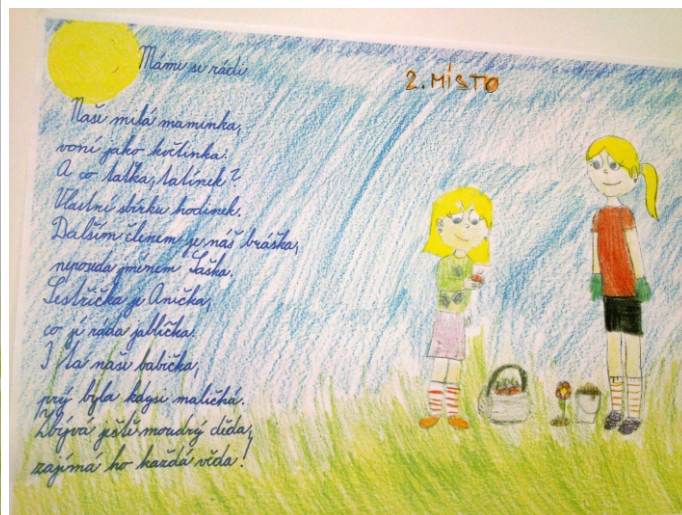 Máme se rádi
2. MÍSTO
Naše milá maminka,
voní jako květinka.
A co taťka, tatínek?
Vlastní sbírku hodinek.
Dalším členem je náš bráška,
neposeda jménem Sáška.
Sestřička je Anička,
co jí ráda jablíčka.
I ta naše babička,
prý byla kdysi maličká.
Zbývá ještě moudrý děda,
zajímá ho každá věda!